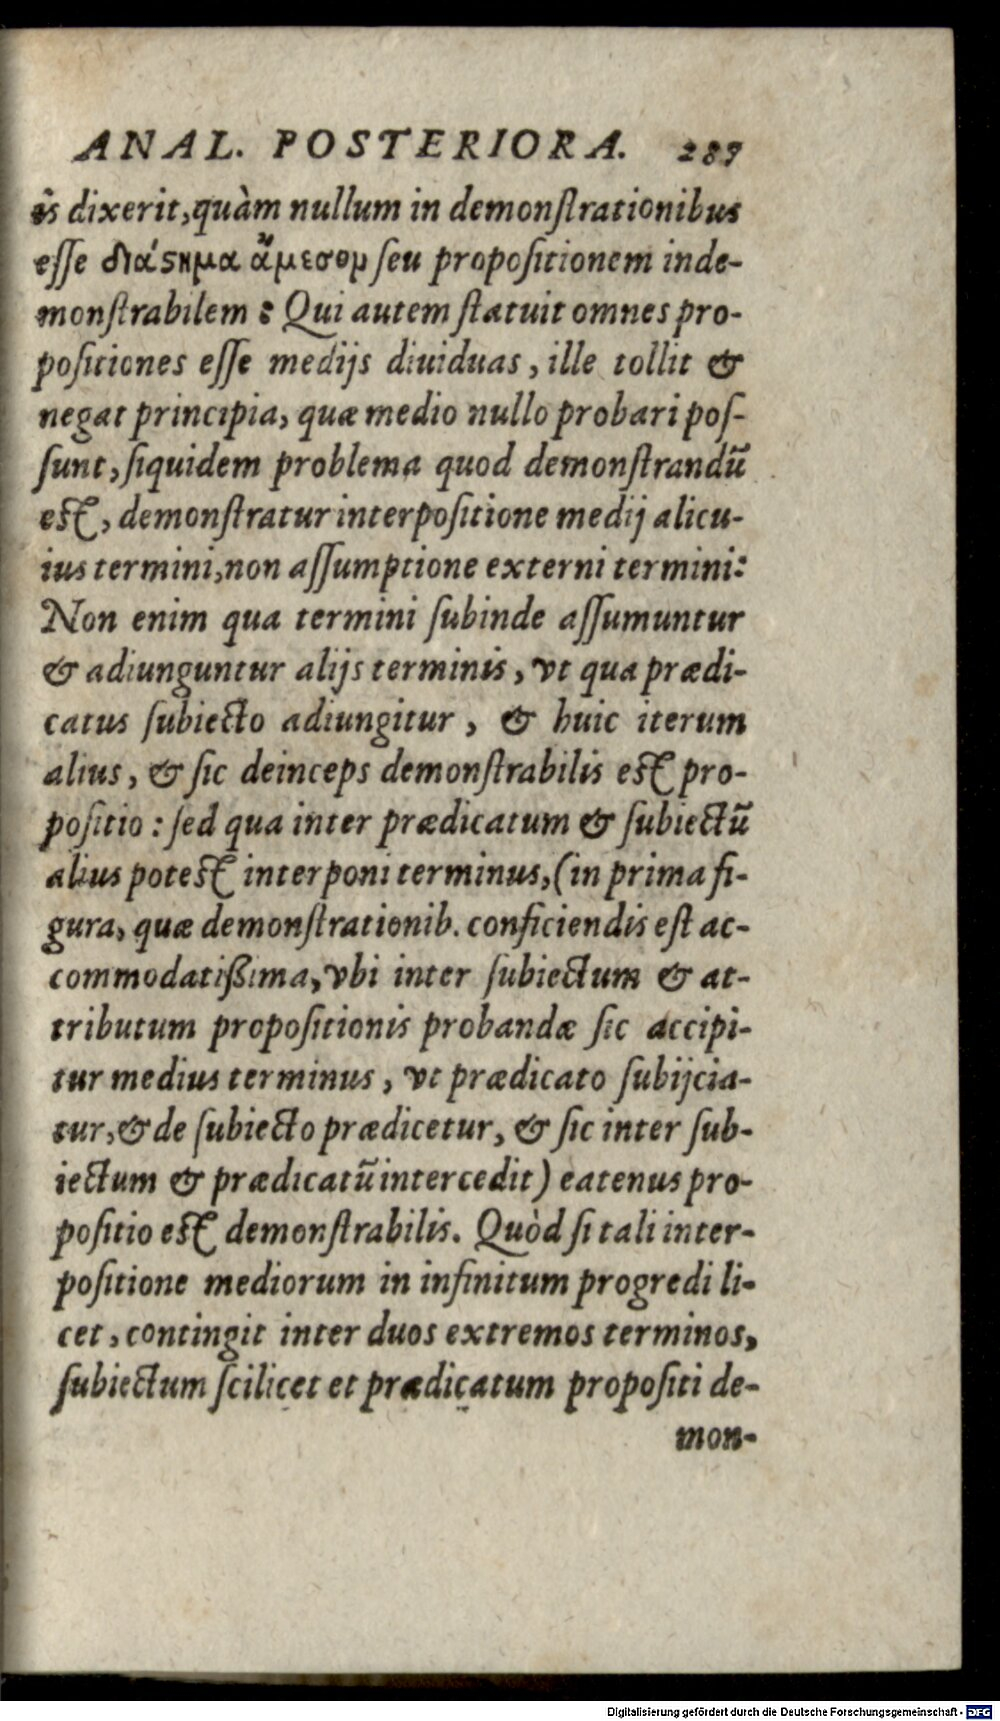 ANAL. POSTERIORA. 287
is dixerit, quàm nullum in demonſtrationibus
eſſe διάστημα ἄμεσον ſeu propoſitionem inde-
monſtrabilem: Qui autem ſtatuit omnes pro-
poſitiones eſſe medijs diuiduas, ille tollit &
negat principia, quæ medio nullo probari poſ-
ſunt, ſiquidem problema quod demonſtrandū
eſt, demonſtratur interpoſitione medij alicu-
ius termini, non aſſumptione externi termini:
Non enim qua termini ſubinde aſſumuntur
& adiunguntur alijs terminis, vt qua prædi-
catus ſubiecto adiungitur, & huic iterum
alius, & ſic deinceps demonſtrabilis eſt pro-
poſitio: ſed qua inter prædicatum & ſubiectū
alius poteſt interponi terminus, (in prima fi-
gura, quæ demonſtrationib. conficiendis eſt ac-
commodatißima, vbi inter ſubiectum & at-
tributum propoſitionis probandæ ſic accipi-
tur medius terminus, vt prædicato ſubijcia-
tur, & de ſubiecto prædicetur, & ſic inter ſub-
iectum & prædicatū intercedit) eatenus pro-
poſitio eſt demonſtrabilis. Quòd ſi tali inter-
poſitione mediorum in infinitum progredi li-
cet, contingit inter duos extremos terminos,
ſubiectum ſcilicet et prædicatum propoſiti de-
mon-
Digitalisierung gefördert durch die Deutsche Forschungsgemeinschaft - DFG